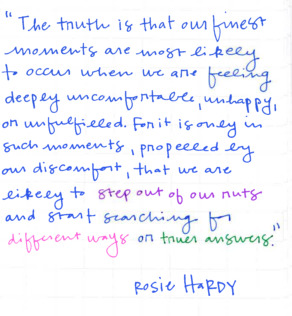 "The truth is that our finest
moments are most likely
to occur when we are feeling
deeply uncomfortable, unhappy,
or unfulfilled. For it is only in
such moments, propelled by
our discomfort, that we are
likely to step out of our ruts
and start searching for
different ways or truer answers."
Rosie HARDY